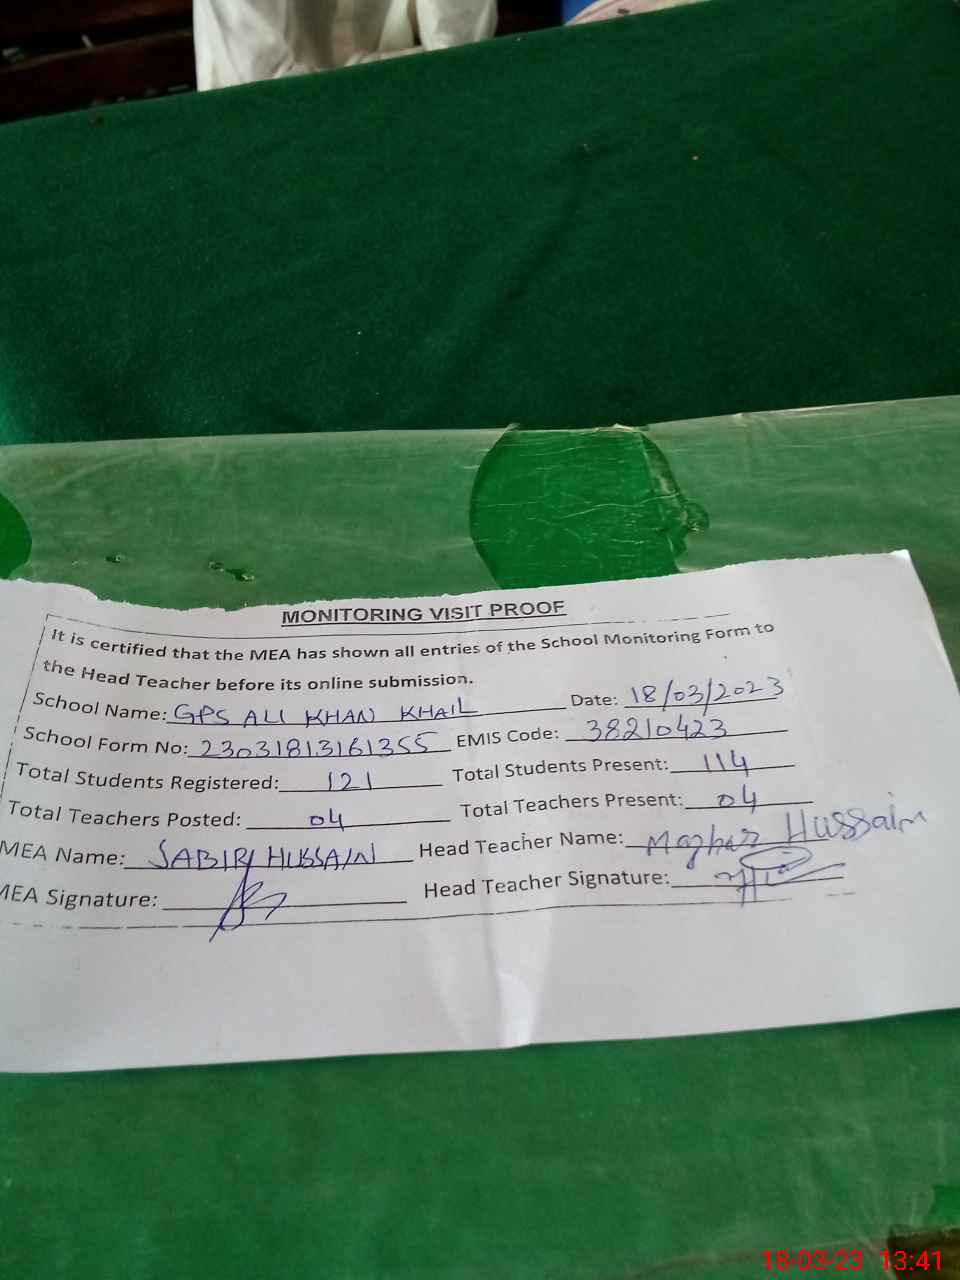 MONITORING VISIT PROOF
It is certified that the MEA has shown all entries of the School Monitoring Form to
the Head Teacher before its online submission.
School Name: GPS ALI KHAN KHAIL Date: 18/03/2023
School Form No: 23031813161355 EMIS Code: 38210423
Total Students Registered: 121 Total Students Present: 114
Total Teachers Posted: 04 Total Teachers Present: 04
MEA Name: SABIR HUSSAIN Head Teacher Name: Mazhar Hussain
MEA Signature: Head Teacher Signature:
18-03-23 13:41